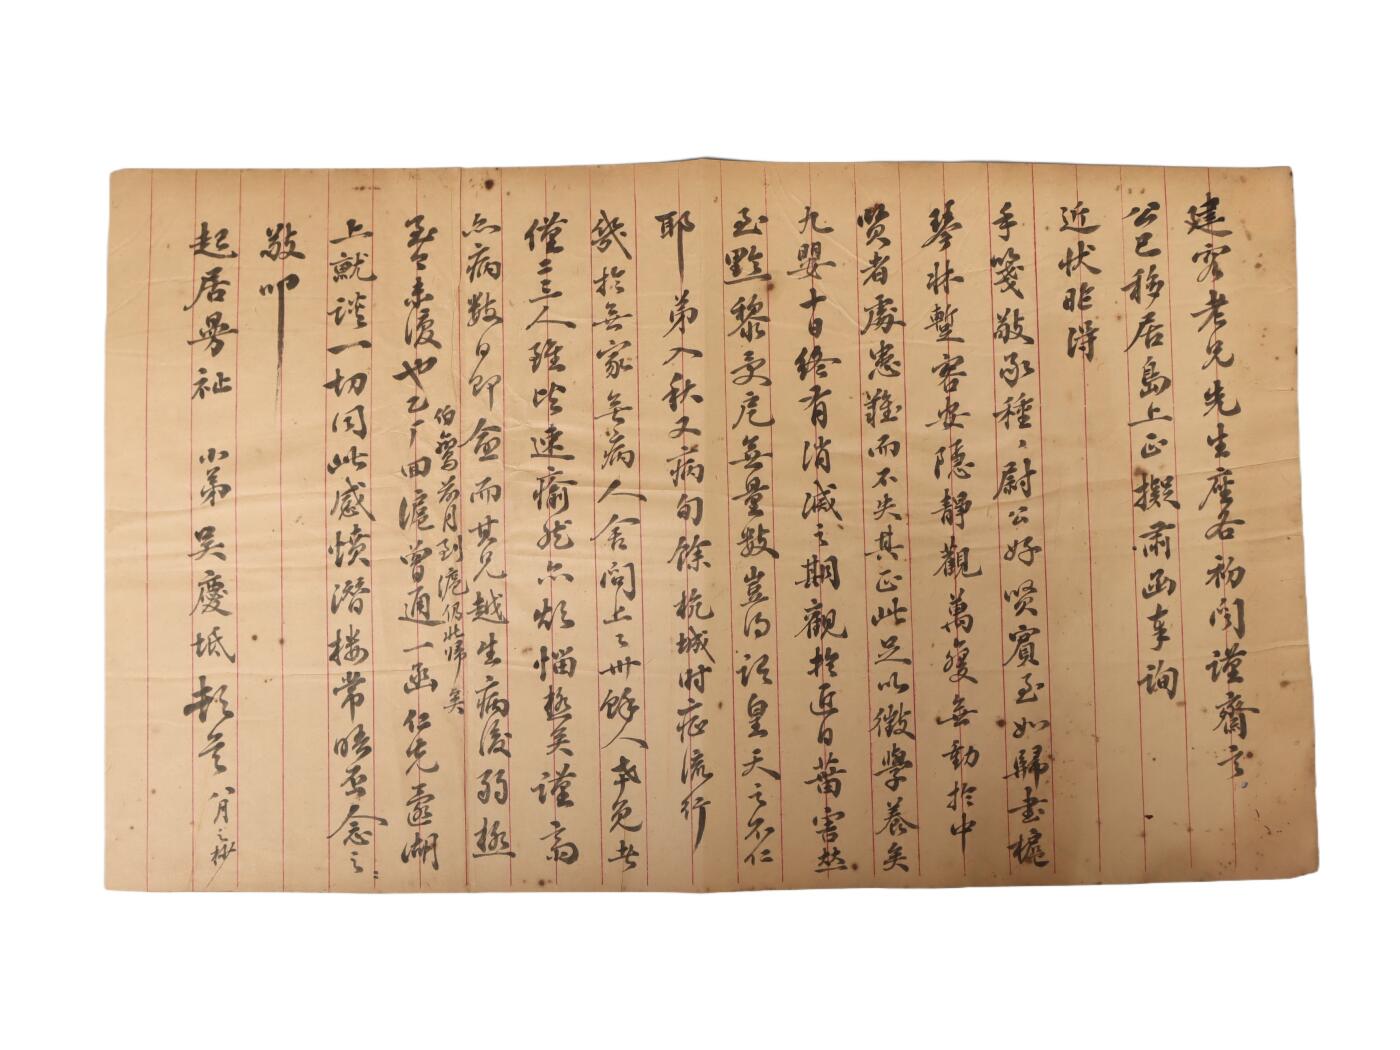 建容老兄先生座右初閱謹齋言
公已移居島上正擬肅函奉詢
近狀昨得
手箋敬承種〻尉公好賢賓至如歸書櫨
琴牀暫容安隱靜觀萬變無動於中
賢者處患難而不失其正此足以徵學養矣
九嬰十日終有消滅之期觀於近日菑害並
至黔黎受虐無量數豈得謂皇天之不仁
耶 弟入秋又病旬餘杭城時症流行
幾於無家無病人舍間上上卅餘人幸免者
僅二三人雖皆速瘉然亦煩惱極矣謹齋
亦病數日即愈而其兄越生病後弱極
至今未復也乙厂回滬曾通一函仁先臺湖
伯鸞前月到滬仍北歸矣
上鯎談一切同此感憤潛樓常晤否念之
敬叩
起居曼祉 小弟吳慶坻頓首 八月之杪